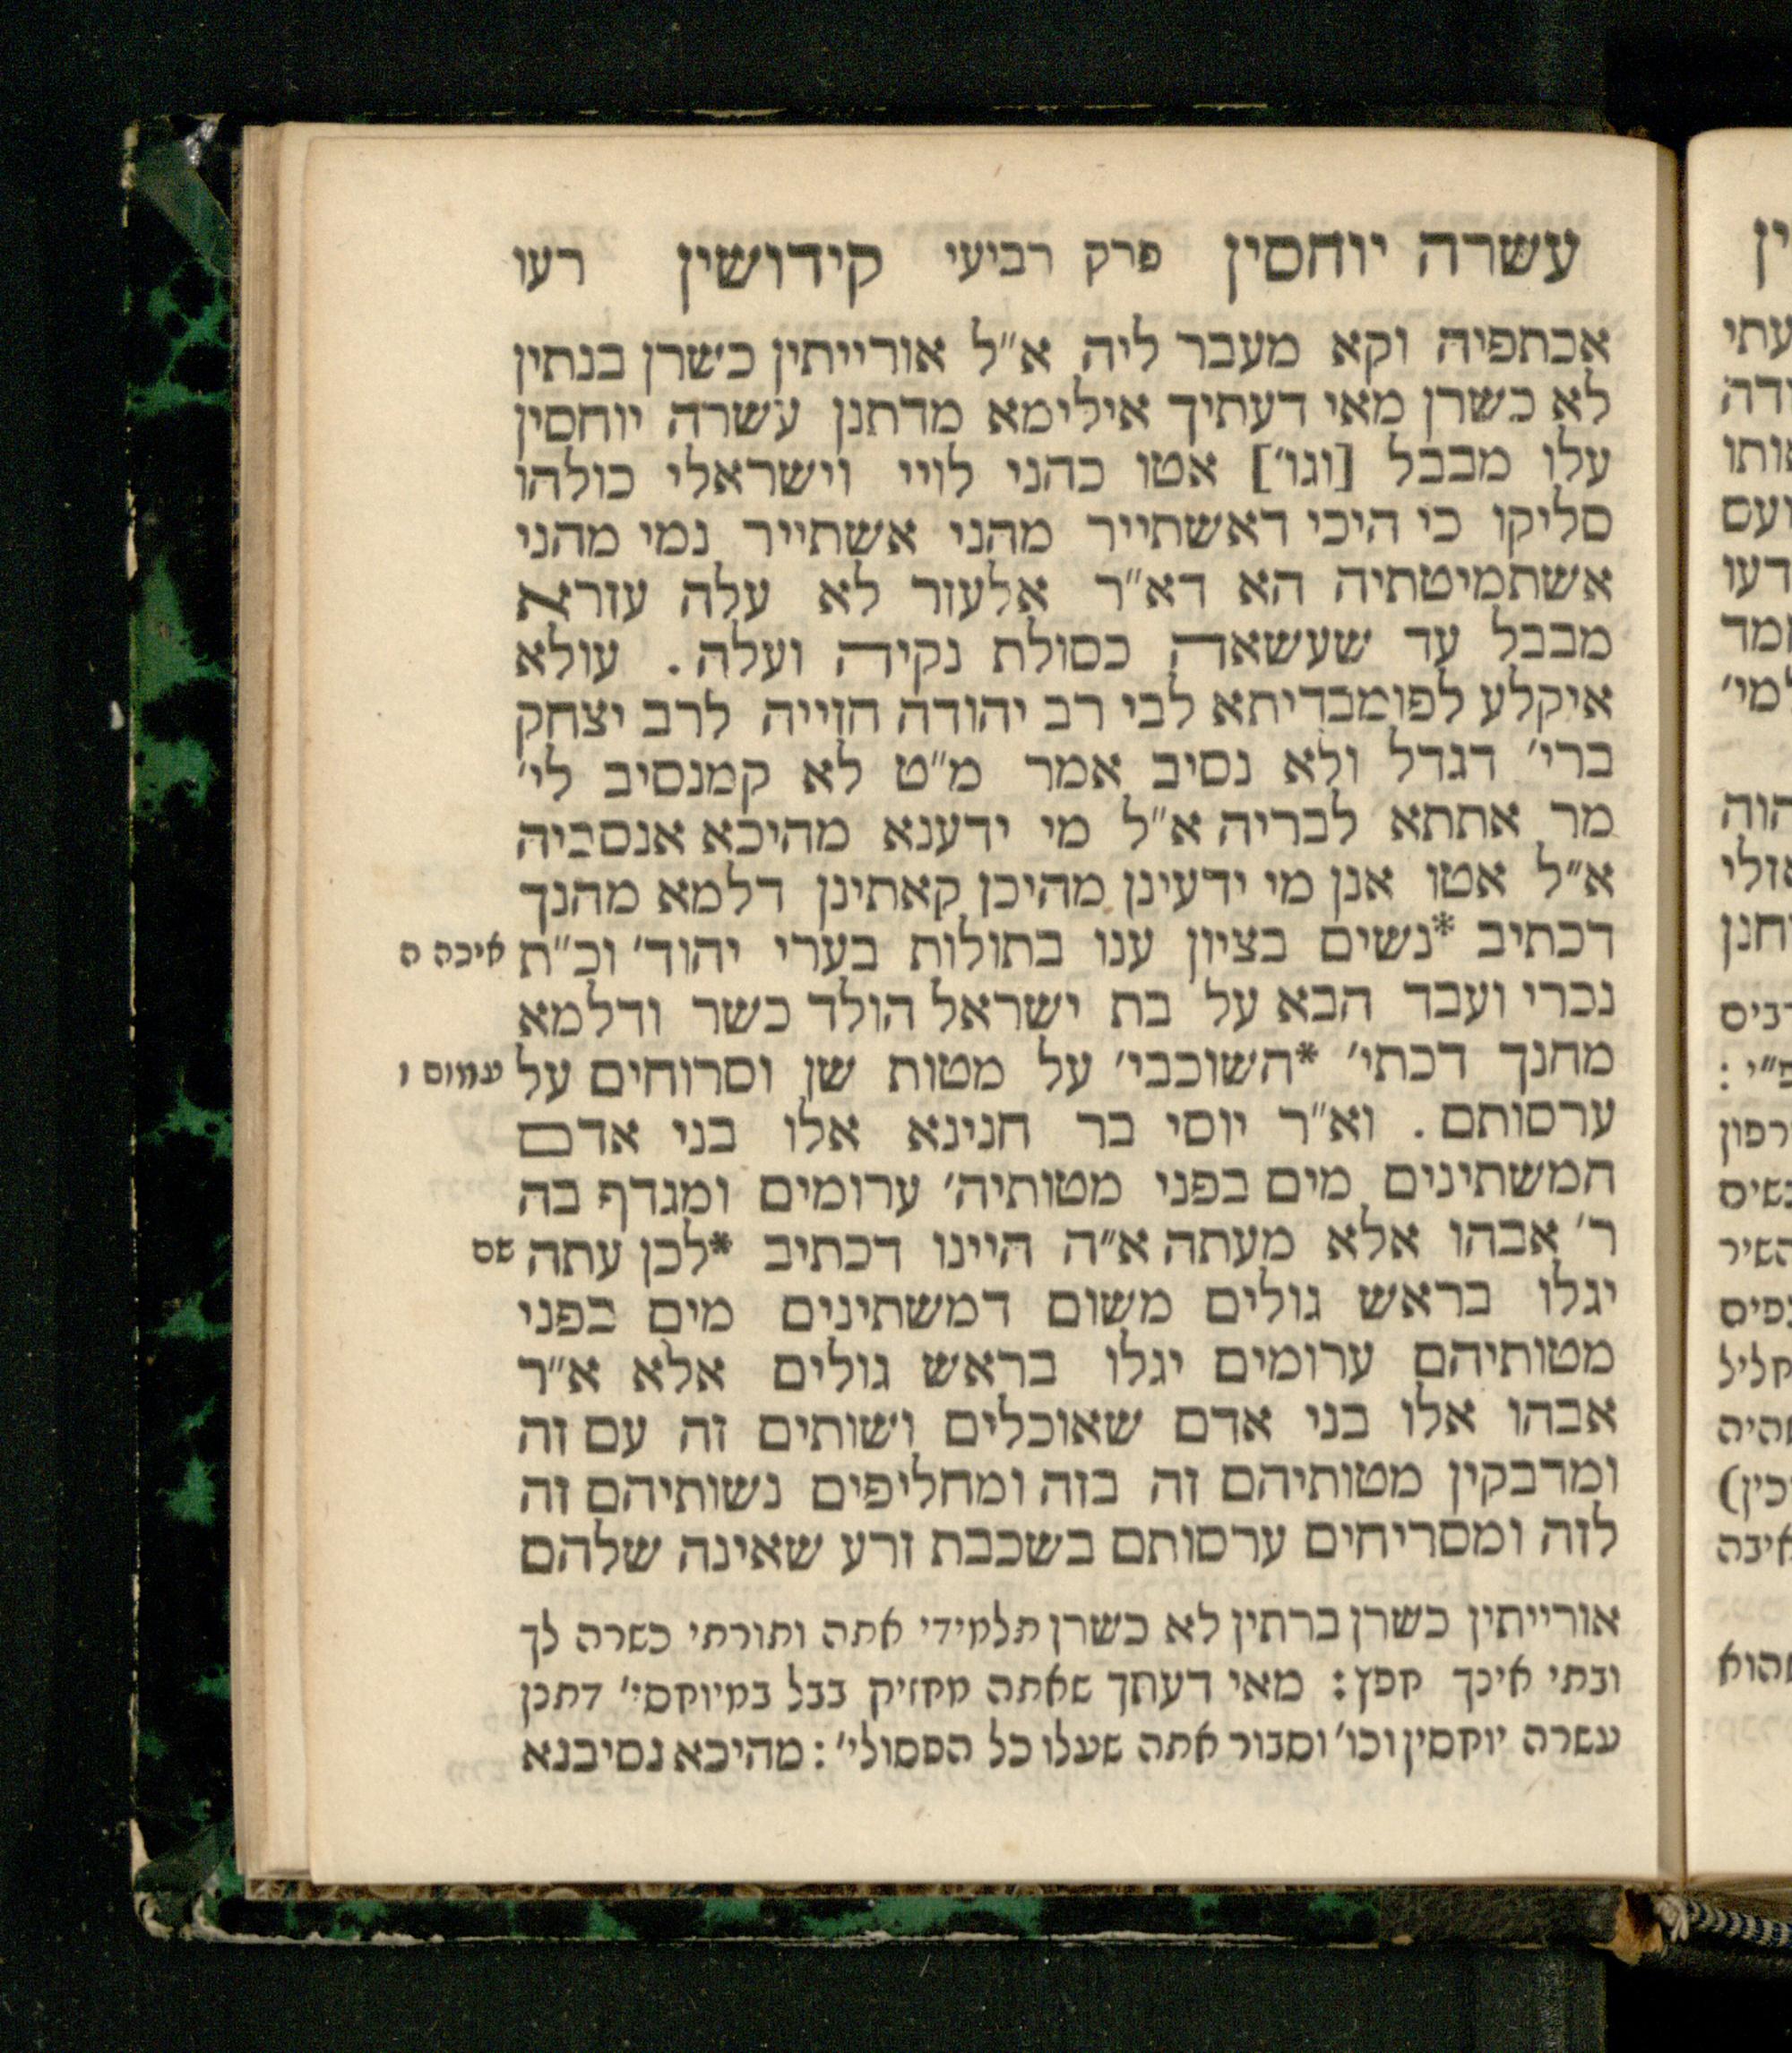 עשרה יוחסין פרק רביעי קידושין רעו
אכתפיה וקא מעבר ליה א״ל אורייתין כשרן בנתין
לא כשרן מאי דעתיך אילימא מדתנן עשרה יוחסין
עלו מבבל [וגו׳] אטו כהני לויי וישראלי כולהו
סליקו כי היכי דאשתייר מהני אשתייר נמי מהני
אשתמיטתיה הא דא״ר אלעזר לא עלה עזרא
מבבל עד שעשאה כסולת נקיה ועלה. עולא
איקלע לפומבדיתא לבי רב יהודה חזייה לרב יצחק
ברי׳ דגדל ולא נסיב אמר מ״ט לא קמנסיב לי׳
מר אתתא לבריה א״ל מי ידענא מהיכא אנסביה
א״ל אטו אנן מי ידעינן מהיכן קאתינן דלמא מהנך
דכתיב *נשים בציון ענו בתולות בערי יהוד׳ וכ״ת איכה ה
נכרי ועבד הבא על בת ישראל הולד כשר ודלמא
מהנך דכתי׳ *השוכבי׳ על מטות שן וסרוחים על עמוס ו
ערסותם. וא״ר יוסי בר חנינא אלו בני אדם
המשתינים מים בפני מטותיה׳ ערומים ומגדף בה
ר׳ אבהו אלא מעתה א״ה היינו דכתיב *לכן עתה שם
יגלו בראש גולים משום דמשתינים מים בפני
מטותיהם ערומים יגלו בראש גולים אלא א״ר
אבהו אלו בני אדם שאוכלים ושותים זה עם זה
ומדבקין מטותיהם זה בזה ומחליפים נשותיהם זה
לזה ומסריחים ערסותם בשכבת זרע שאינה שלהם
אורייתין כשרן ברתין לא כשרן תלמידי אתה ותורתי כשרה לך
ובתי אינך חפץ: מאי דעתך שאתה מחזיק בבל במיוחסי׳ דתנן
עשרה יוחסין וכו׳ וסבור אתה שעלו כל הפסולי׳: מהיכא נסיבנא